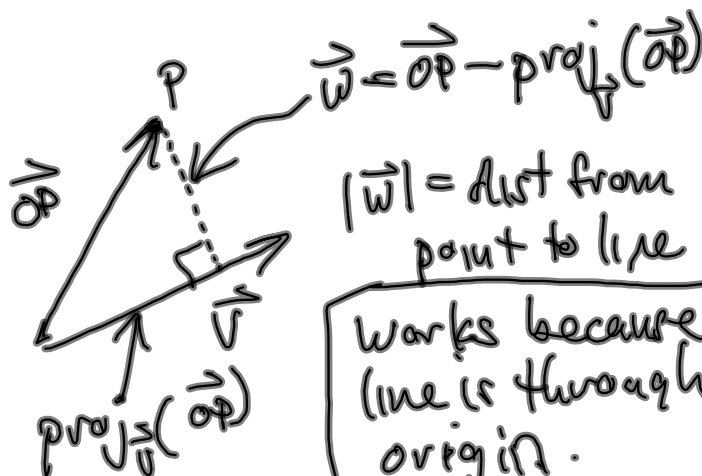 P
w⃗ = OP⃗ − proj_v⃗(OP⃗)
OP⃗
|w⃗| = dist from
point to line
v⃗
works because
line is through
origin.
proj_v⃗(OP⃗)